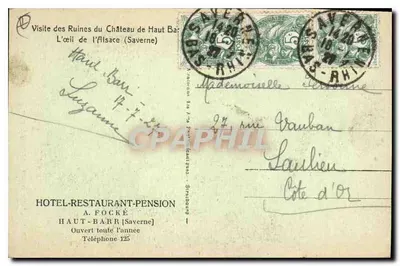 Visite des Ruines du Château de Haut Bar
L'œil de l'Alsace (Saverne)
SAVERNE
14 20
BAS-RHIN
SAVERNE
14 20
BAS-RHIN
5
5
Haut-Barr
17-7-27
Suzanne
Mademoiselle
27 rue Vauban
Saulieu
Côte d'Or
HOTEL-RESTAURANT-PENSION
A. FOCKÉ
HAUT-BARR (Saverne)
Ouvert toute l'année
Téléphone 125
Cparama